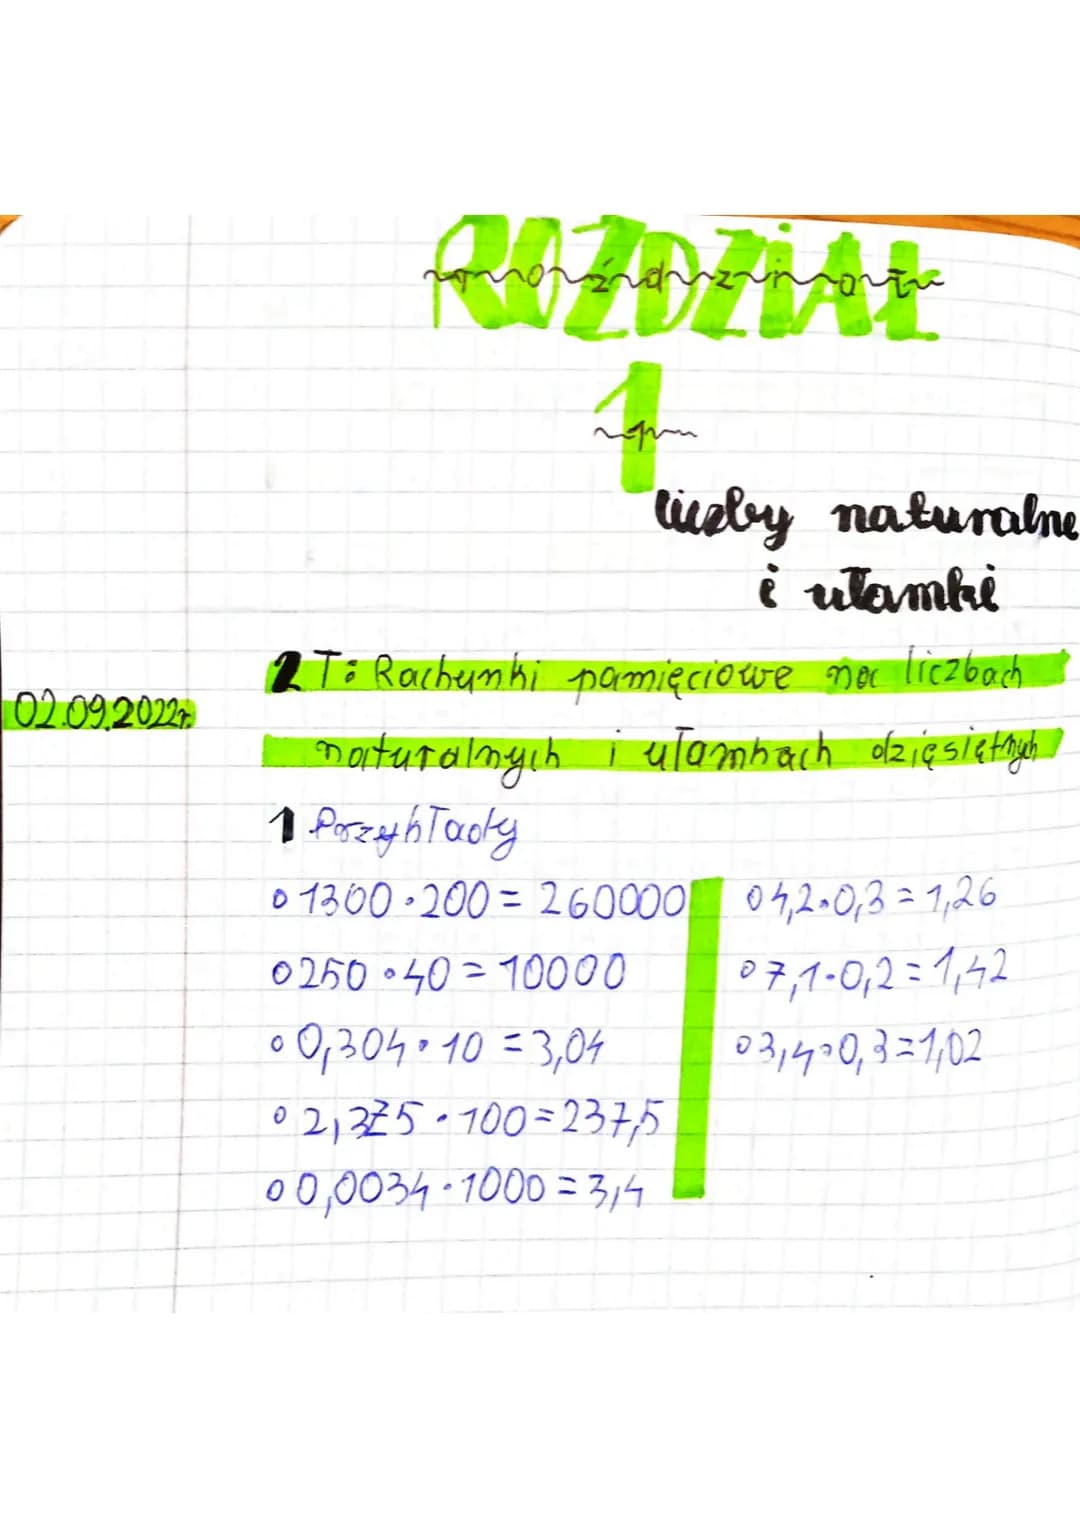 ROŹDZIAŁ
1
liczby naturalne
i ułamki
02.09.2022r.
2 T: Rachunki pamięciowe na liczbach
naturalnych i ułamkach dzięsiętnych
1 Przykłady
1300·200=260000
250·40=10000
0,304·10=3,04
2,375·100=237,5
0,0034·1000=3,4
4,2·0,3=1,26
7,1·0,2=1,42
3,4·0,3=1,02